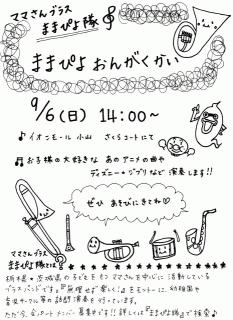 ママさんブラス
ままぴよ隊
ままぴよ おんがくかい
9/6(日) 14:00〜
イオンモール小山 さくらコートにて
お子様の大好きな あのアニメの曲や
ディズニー・ジブリなど 演奏します!!
ぜひ あそびにきてね♡
ママさんブラス
ままぴよ隊とは
栃木県・茨城県の子どもをもつママさんを中心に活動している
ブラスバンドです♪『無理せず楽しく』をモットーに、幼稚園や
育児サークル等の訪問演奏を行っています。
ただ今、全パートメンバー募集中です!!詳しくは『ままぴよ隊』まで検索♪